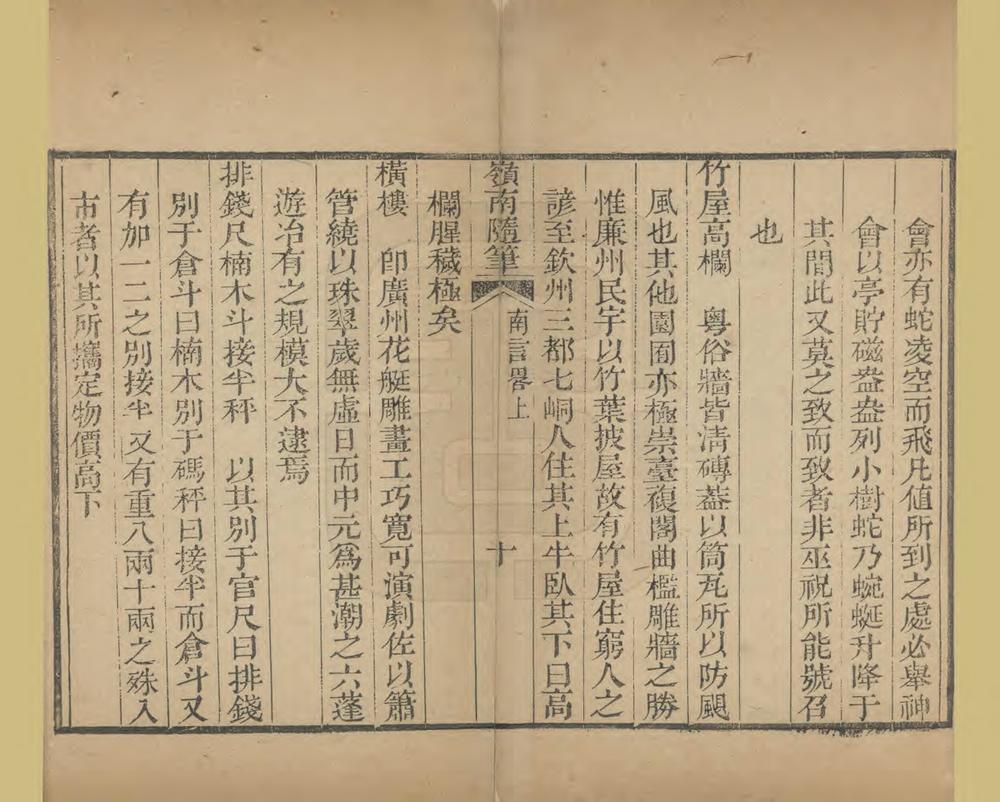 會亦有蛇凌空而飛凡值所到之處必舉神
會以亭貯磁盎盎列小樹蛇乃蜿蜒升降于
其間此又莫之致而致者非巫祝所能號召
也
竹屋高欄　粤俗牆皆淸磚葢以筒瓦所以防颶
風也其他園囿亦極崇臺複閣曲檻雕牆之勝
惟廉州民宇以竹葉披屋故有竹屋住窮人之
諺至欽州三都七峒人住其上牛臥其下曰高
嶺南隨筆　南言畧上　十
欄腥穢極矣
橫樓　卽廣州花艇雕畫工巧寬可演劇佐以簫
管繞以珠翠歲無虛日而中元爲甚潮之六蓬
遊冶有之規模大不逮焉
排錢尺楠木斗接半秤　以其別于官尺曰排錢
別于倉斗曰楠木別于碼秤曰接半而倉斗又
有加一二之別接半又有重八兩十兩之殊入
市者以其所攜定物價高下